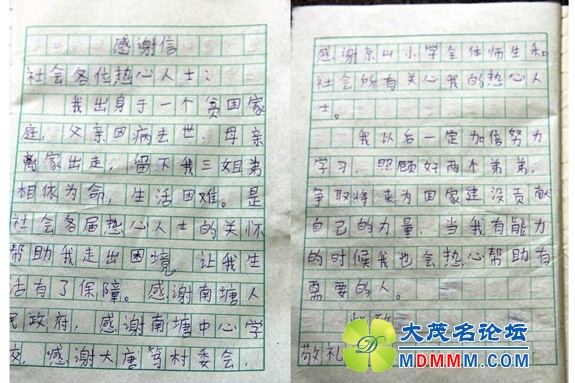 感谢信
社会各位热心人士：
我出身于一个贫困家
庭，父亲因病去世，母亲
离家出走，留下我三姐弟
相依为命，生活困难。是
社会各届热心人士的关怀
帮助我走出困境，让我生
活有了保障。感谢南塘人
民政府，感谢南塘中心学
校，感谢大唐笃村委会，
感谢东山小学全体师生和
社会所有关心我的热心人
士。
我以后一定加倍努力
学习，照顾好两个弟弟，
争取将来为国家建设贡献
自己的力量，当我有能力
的时候我也会热心帮助有
需要的人。
敬礼
大茂名论坛
MDMMM.COM